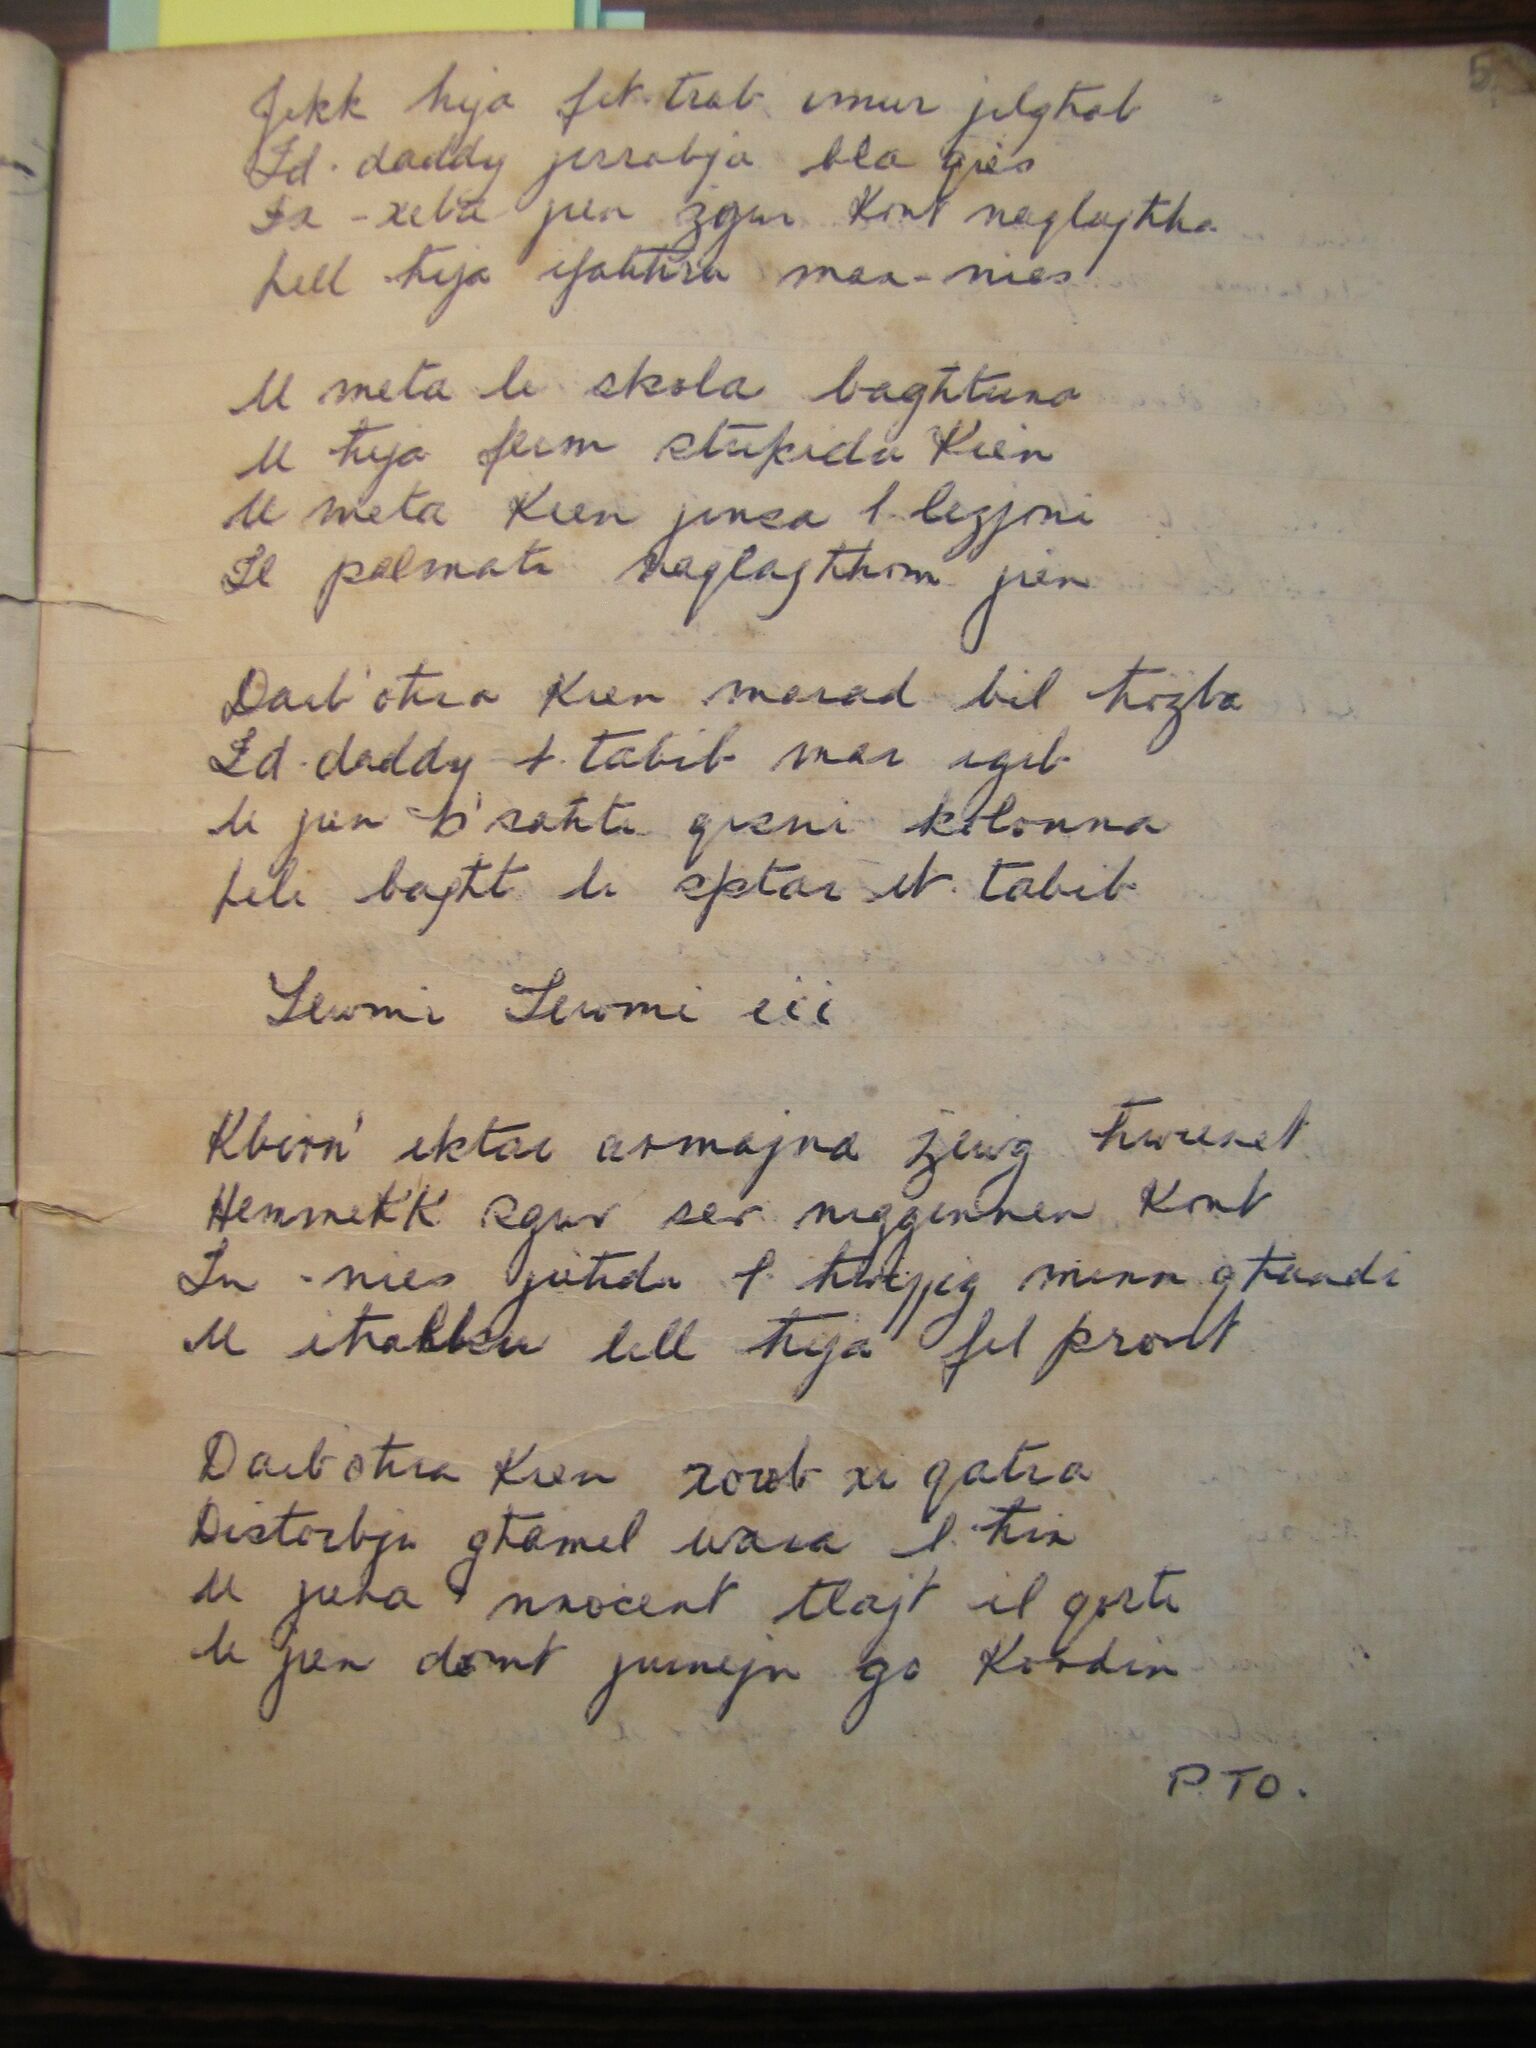 5
Jekk ħija fit-trab imur jilgħab
Id-daddy jirrabja bla qies
Ix-xebgħa jien żgur kont naqlagħha
lill ħija ifaħħru man-nies

U meta le skola bagħtuna
U ħija ferm stupidu Kien
U meta Kien jinsa l-lezjoni
Il palmati naqlagħhom jien

Darb' oħra Kien marad bil ħożba
Id-daddy t-tabib mar igib
U jien b'saħħti qisni kolonna
lili bagħt le sptar it-tabib

Isimgħu

Kbirn' iktar armajna żewg ħwienet
Hemmekk sgur ser niggennen Kont
In-nies jieħdu l ħwejjeg minn għandi
U iħallsu lill ħija fil pront

Darb oħra Kien xorob xi qatra
Distorbju għamel wara l-ħin
U jiena nnocent tlajt il qorti
U jien domt jumejn go Kordin

P.TO.